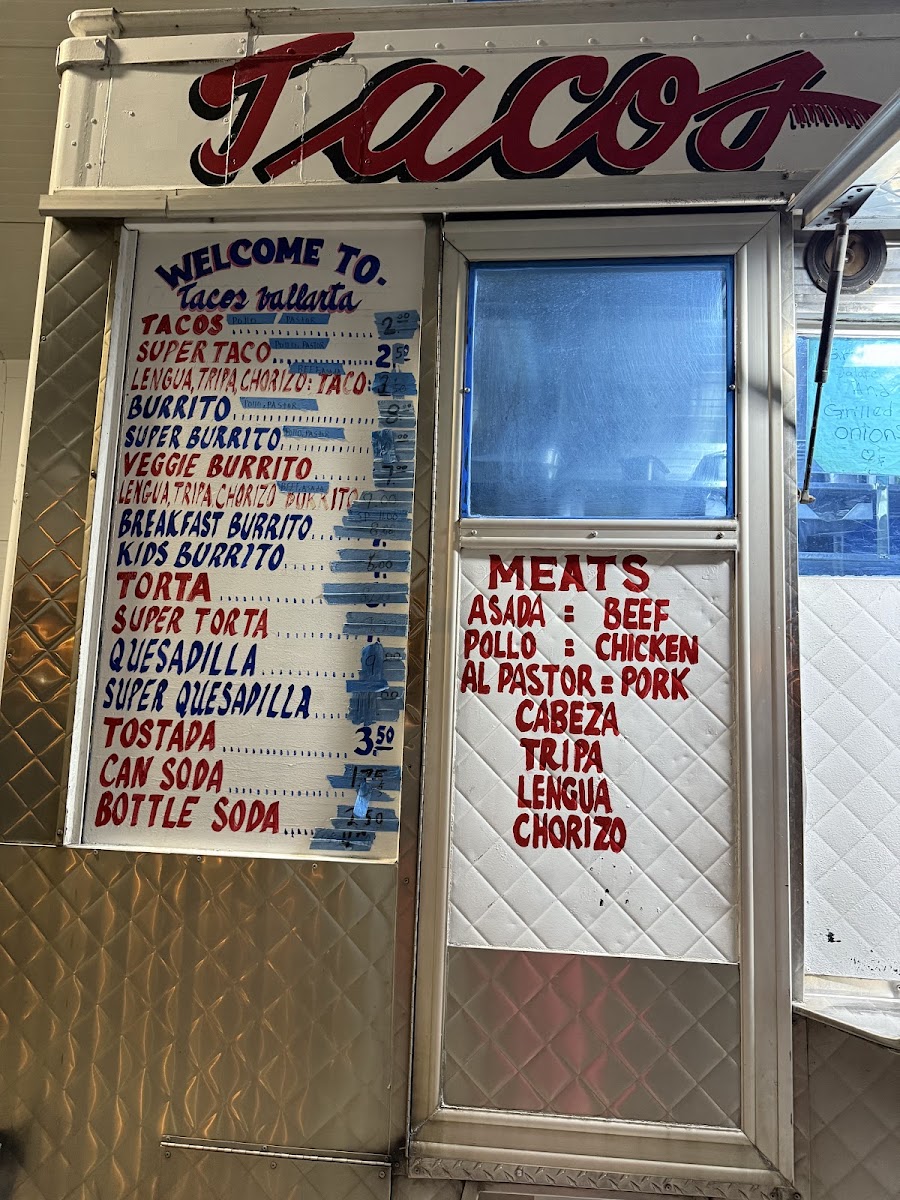 Tacos
WELCOME TO.
Tacos Vallarta
TACOS POLLO PASTOR 2.00
SUPER TACO POLLO, PASTOR 2.50
LENGUA, TRIPA, CHORIZO: TACO:
BURRITO POLLO, PASTOR 8
SUPER BURRITO POLLO, PASTOR
VEGGIE BURRITO 7.00
LENGUA, TRIPA, CHORIZO BURRITO
BREAKFAST BURRITO
KIDS BURRITO
TORTA
SUPER TORTA
QUESADILLA 9
SUPER QUESADILLA
TOSTADA 3.50
CAN SODA 1.75
BOTTLE SODA
MEATS
ASADA = BEEF
POLLO = CHICKEN
AL PASTOR = PORK
CABEZA
TRIPA
LENGUA
CHORIZO
Grilled
onion